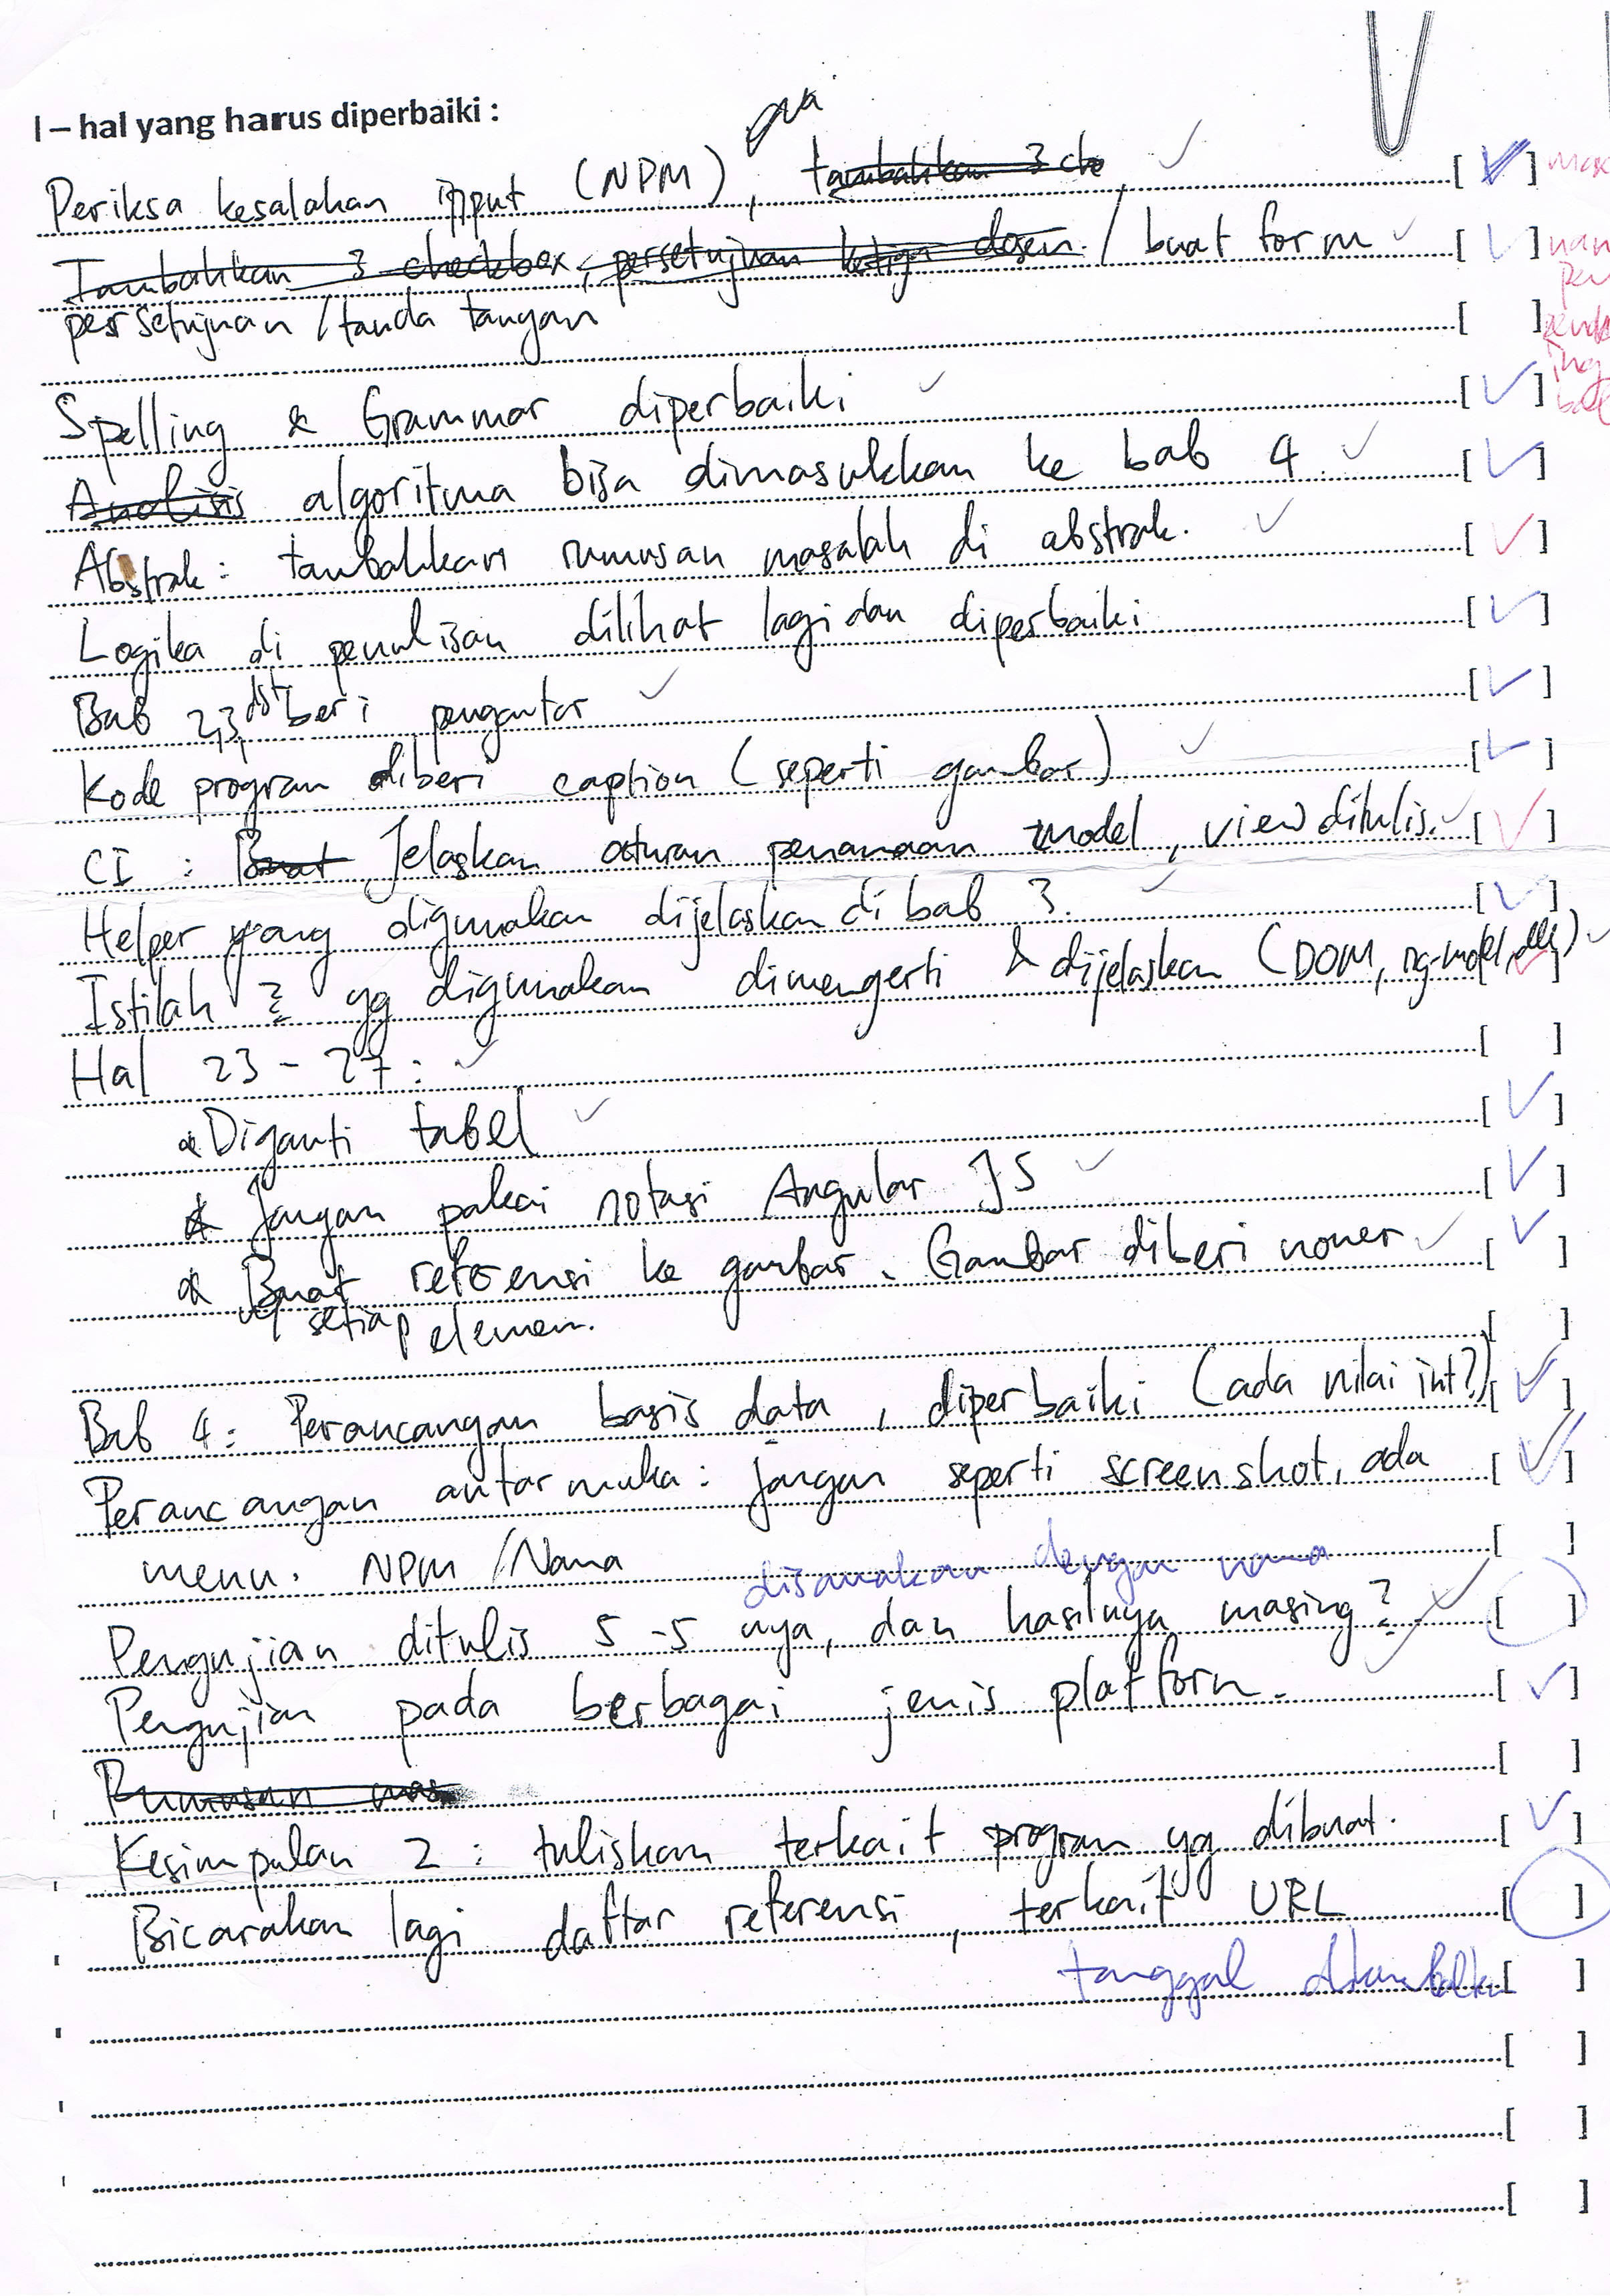 l – hal yang harus diperbaiki :
Periksa kesalahan input (NPM), tambahkan 3 che [ ✓ ]
Tambahkan 3 checkbox, persetujuan ketiga dosen. / buat form ✓ [ ✓ ]
persetujuan / tanda tangan [ ]
Spelling & Grammar diperbaiki ✓ [ ✓ ]
Analisis algoritma bisa dimasukkan ke bab 4. ✓ [ ✓ ]
Abstrak: tambahkan rumusan masalah di abstrak. ✓ [ ✓ ]
Logika di penulisan dilihat lagi dan diperbaiki [ ✓ ]
Bab 2,3, dst beri pengantar ✓ [ ✓ ]
Kode program diberi caption (seperti gambar) ✓ [ ✓ ]
CI : Buat Jelaskan aturan penamaan model, view ditulis. ✓ [ ✓ ]
Helper yang digunakan dijelaskan di bab 3. ✓ [ ✓ ]
Istilah 2 yg digunakan dimengerti & dijelaskan (DOM, ng-model, dll) ✓
Hal 23 - 27 : ✓ [ ]
* Diganti tabel ✓ [ ✓ ]
* Jangan pakai notasi Angular JS ✓ [ ✓ ]
* Buat referensi ke gambar. Gambar diberi nomer ✓ [ ✓ ]
setiap elemen. [ ]
Bab 4: Perancangan basis data, diperbaiki (ada nilai int?) [ ✓ ]
Perancangan antar muka: jangan seperti screenshot, ada [ ✓ ]
menu. NPM / Nama [ ]
disamakan dengan nama
Pengujian ditulis 5 -5 nya, dan hasilnya masing2 ✓ [ ]
Pengujian pada berbagai jenis platform. ✓ [ ✓ ]
Rumusan mas [ ]
Kesimpulan 2 : tuliskan terkait program yg dibuat. [ ✓ ]
Bicarakan lagi daftar referensi, terkait URL [ ]
tanggal [ ]
[ ]
[ ]
[ ]